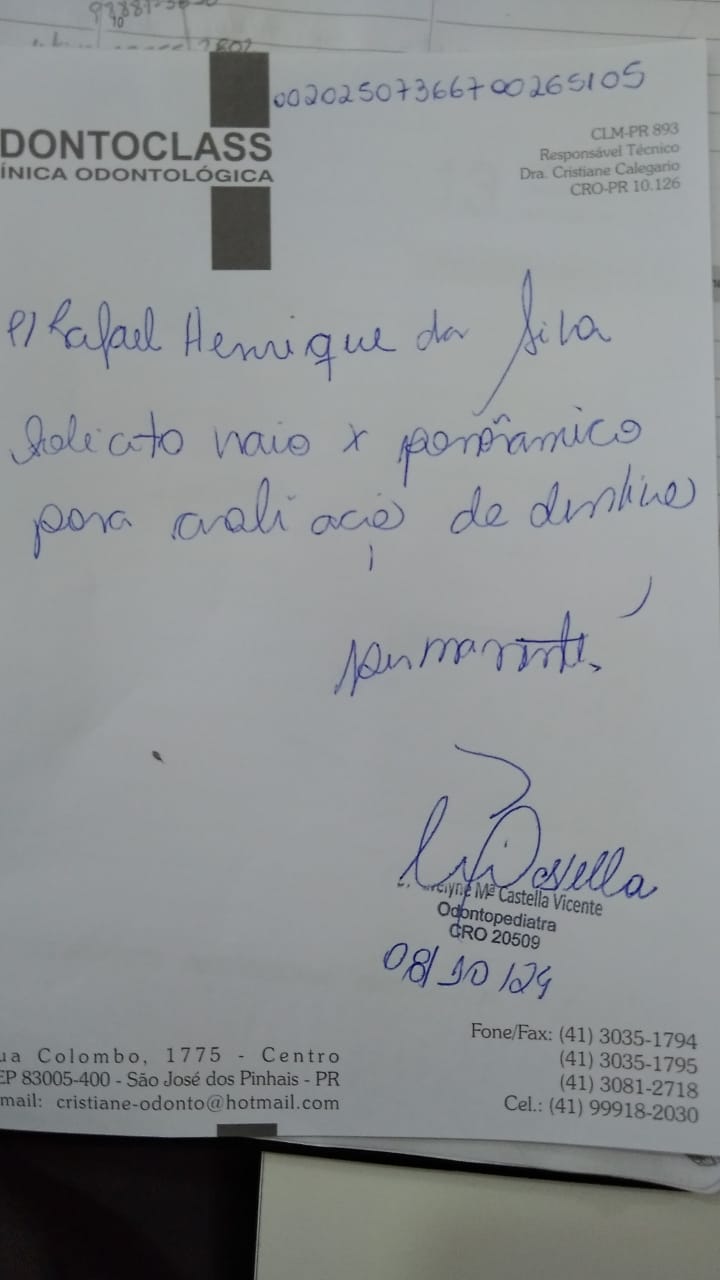 97881-
10
2802
00202507366700265105
DONTOCLASS
ÍNICA ODONTOLÓGICA
CLM-PR 893
Responsável Técnico
Dra. Cristiane Calegario
CRO-PR 10.126
P/ Rafael Henrique da Silva
Solicito raio x panorâmico
para avaliação de dentine
permanente.
Castella
elyne Mª Castella Vicente
Odontopediatra
CRO 20509
08/10/24
ua Colombo, 1775 - Centro
EP 83005-400 - São José dos Pinhais - PR
mail: cristiane-odonto@hotmail.com
Fone/Fax: (41) 3035-1794
(41) 3035-1795
(41) 3081-2718
Cel.: (41) 99918-2030